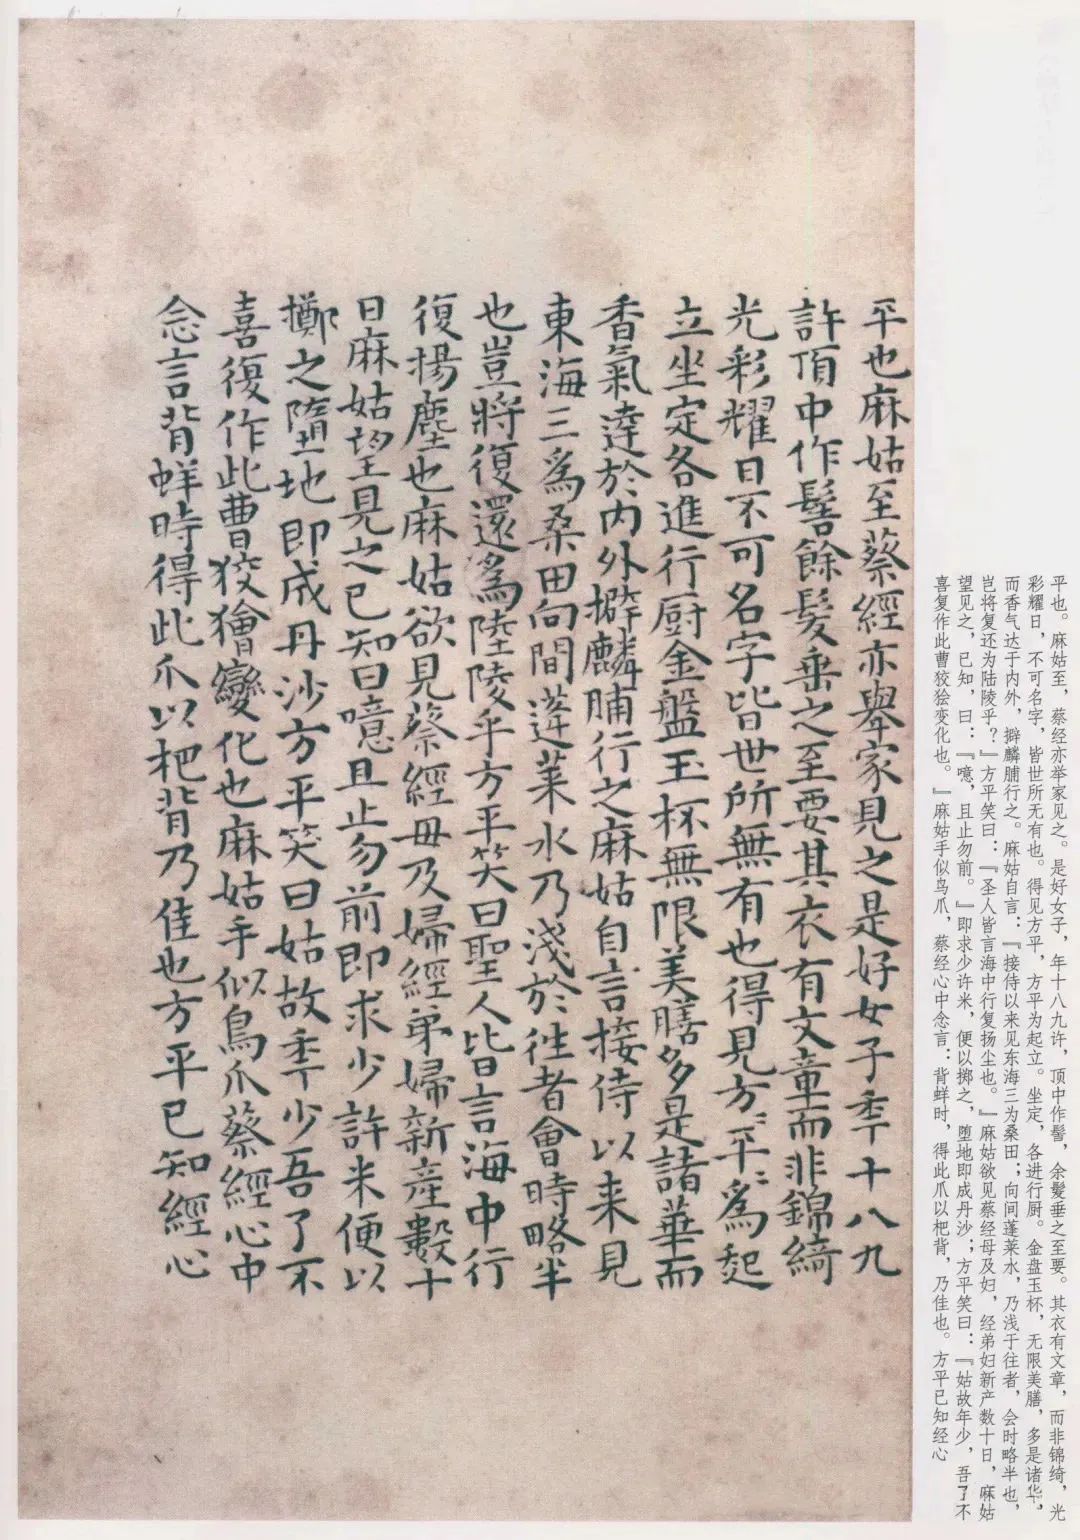 平也麻姑至蔡經亦舉家見之是好女子秊十八九
許頂中作髻餘髮垂之至要其衣有文章而非錦綺
光彩耀日不可名字皆世所無有也得見方〻平〻為起
立坐定各進行厨金盤玉杯無限美膳多是諸華而
香氣達於内外擗麟脯行之麻姑自言接侍以来見
東海三為桑田向間蓬莱水乃淺於往者會時略半
也豈將復還為陸陵乎方平笑曰聖人皆言海中行
復揚塵也麻姑欲見蔡經母及婦經弟婦新產數十
日麻姑望見之已知曰噫且止勿前即求少許米便以
擲之墮地即成丹沙方平笑曰姑故秊少吾了不
喜復作此曹狡獪變化也麻姑手似鳥爪蔡經心中
念言背蛘時得此爪以杷背乃佳也方平已知經心
平也。麻姑至，蔡经亦举家见之。是好女子，年十八九许，顶中作髻，余髮垂之至要。其衣有文章，而非锦绮，光
彩耀日，不可名字，皆世所无有也。得见方平，方平为起立。坐定，各进行厨。金盘玉杯，无限美膳，多是诸华，
而香气达于内外，擗麟脯行之。麻姑自言：『接侍以来见东海三为桑田；向间蓬莱水，乃浅于往者，会时略半也，
岂将复还为陆陵乎？』方平笑曰：『圣人皆言海中行复扬尘也。』麻姑欲见蔡经母及妇，经弟妇新产数十日，麻姑
望见之，已知，曰：『噫，且止勿前。』即求少许米，便以掷之，堕地即成丹沙；方平笑曰：『姑故年少，吾了不
喜复作此曹狡狯变化也。』麻姑手似鸟爪，蔡经心中念言：背蛘时，得此爪以杷背，乃佳也。方平已知经心